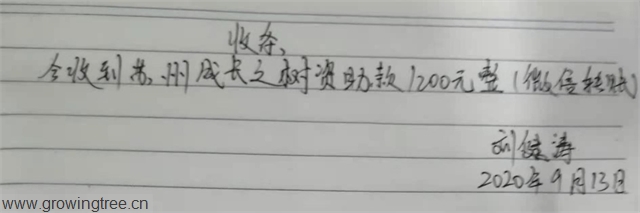 收条、
今收到苏州成长之树资助款1200元整(微信转账)
刘健涛
2020年9月13日
www.growingtree.cn